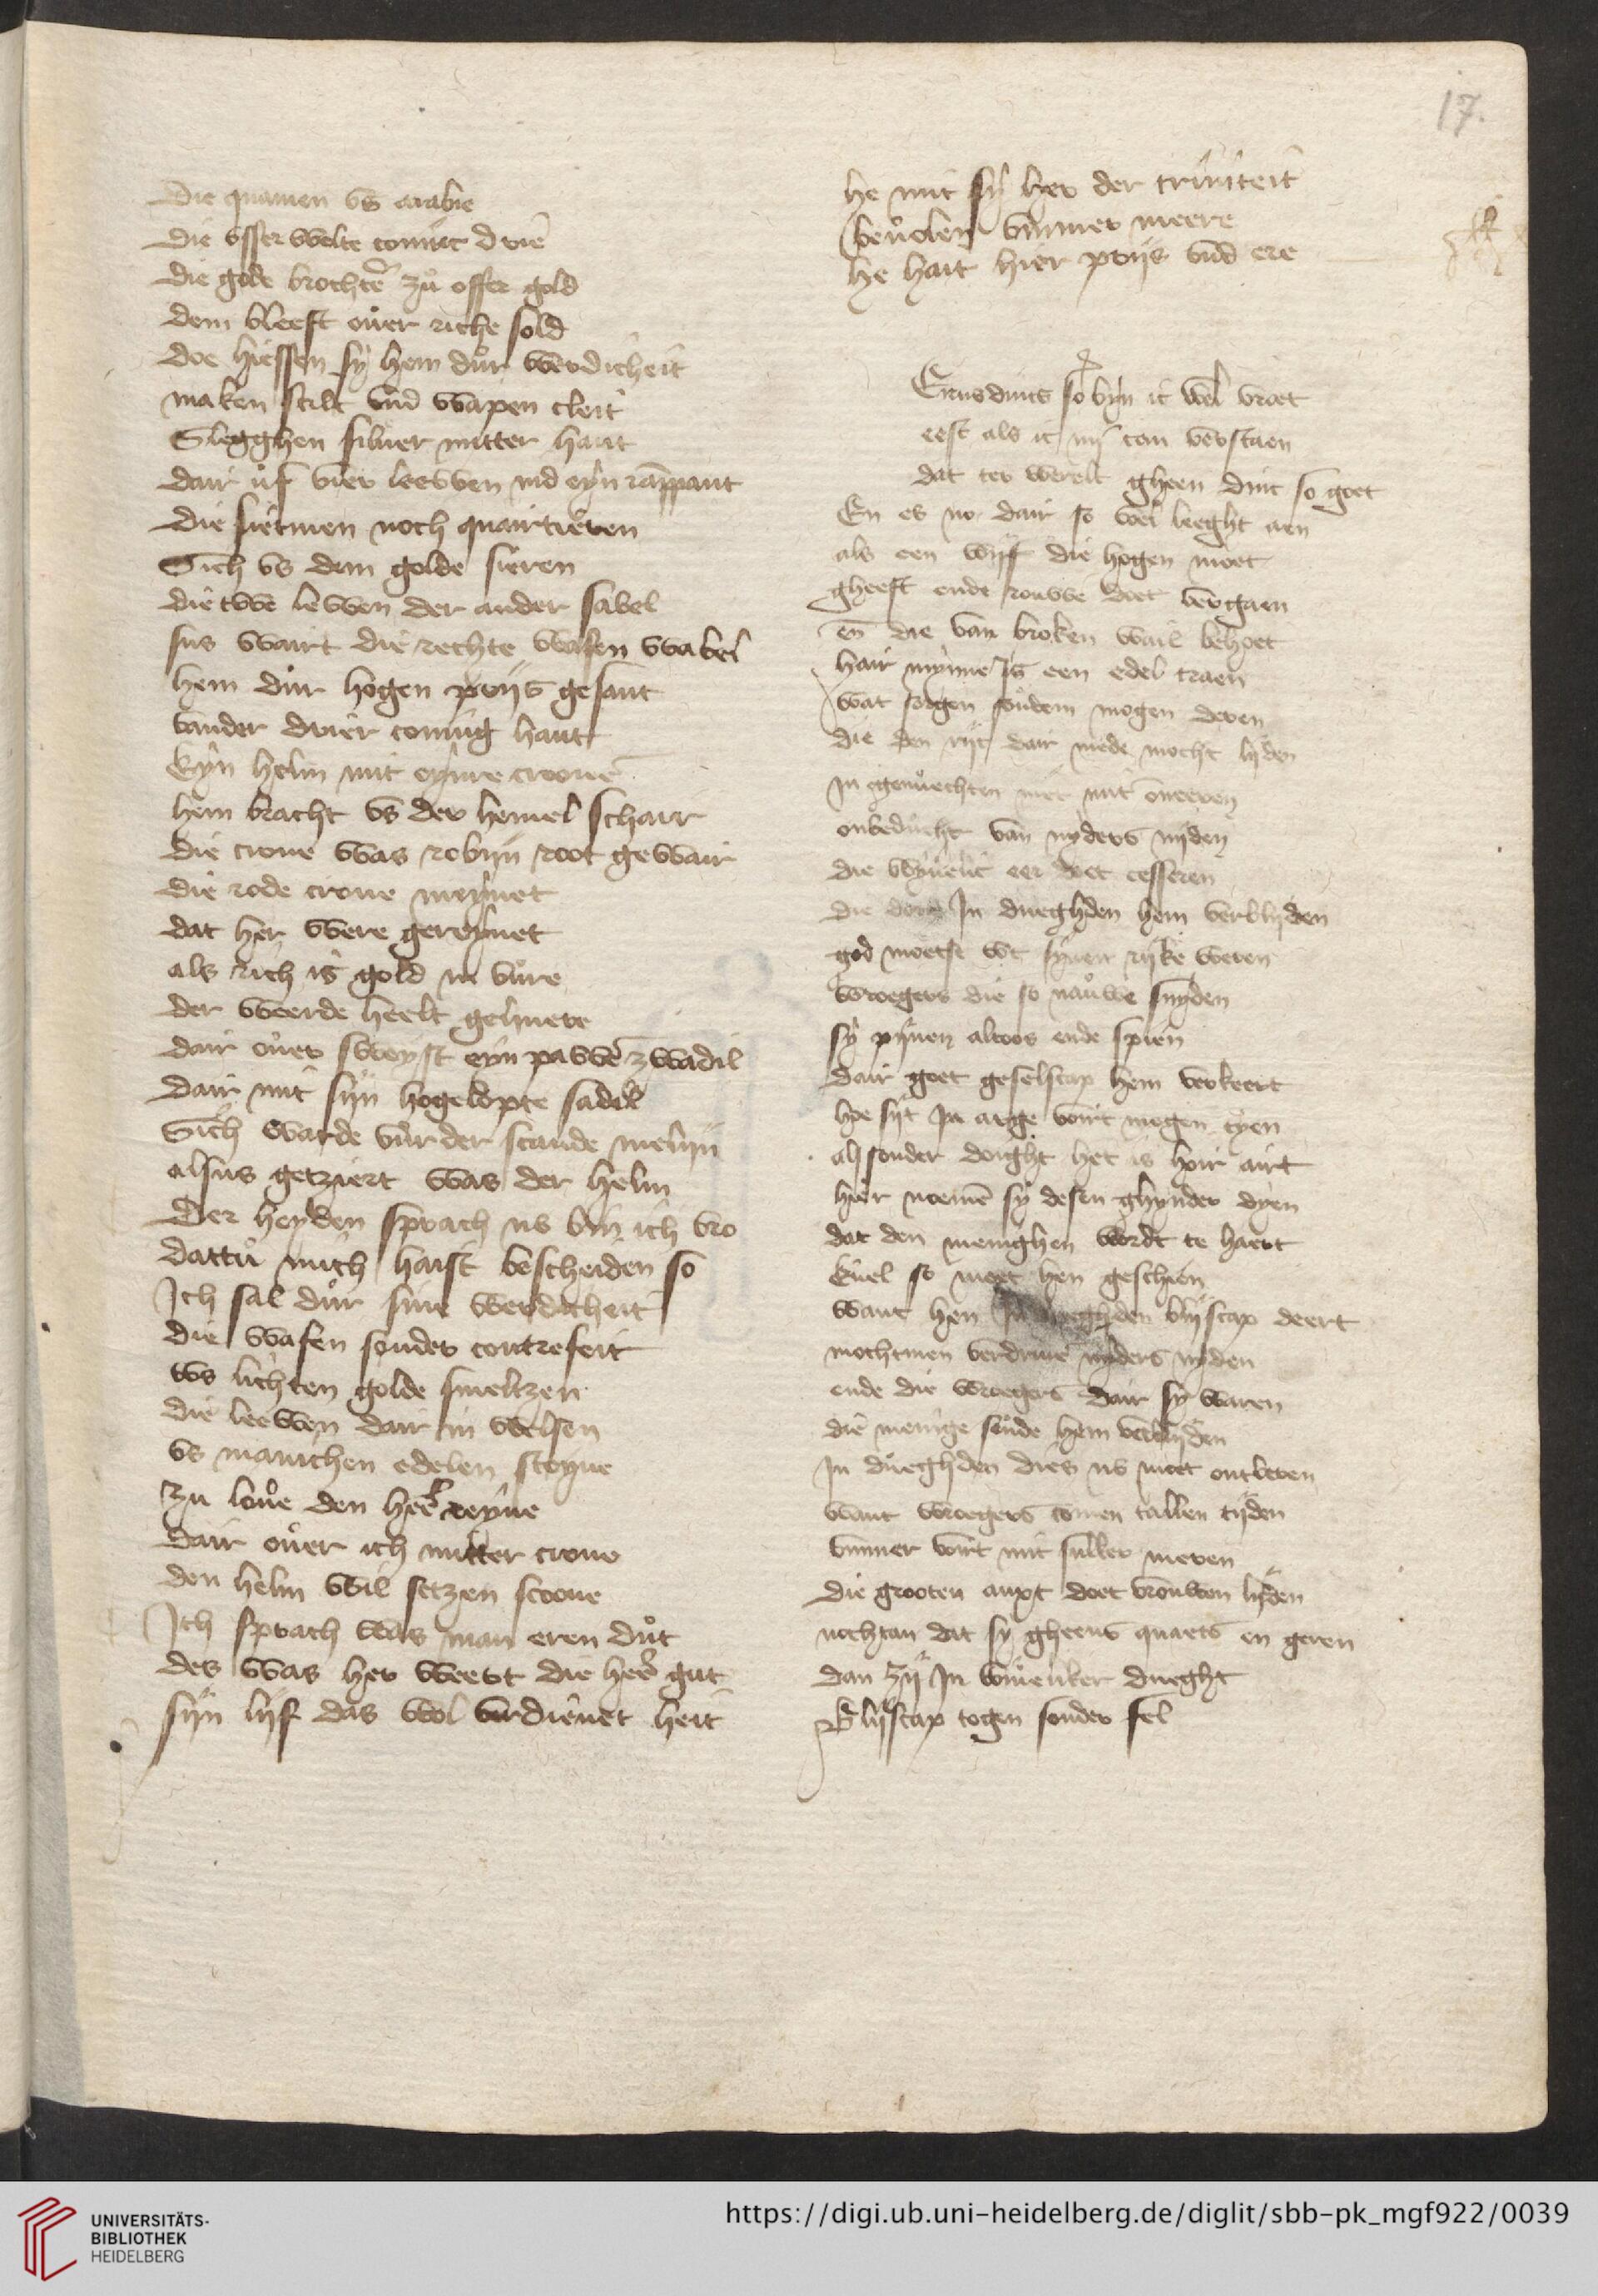 17.
Die quamen vs arabie
die vsser welte conīnc drie
die gode brochtē zů offer gold
dem bleeft ouer riche sold
doe hiessen sy hem důr werdicheit
maken scilt vnd wapen cleit
Slegghen siluer mitter hant
dair uf vier leewen nid eyn rampant
die sietmen noch quairtieren
Sich vs dem golde sieren
die twe lewen der ander sabel
sus wairt die rechte wafen wabel
hem dur hogen prijs gesant
vander drier coning hant
Eyn helm mit eynre croone
hem bracht vs der hemel schair
die crone was robijn root gewair
die rode crone meynet
dat her were gereynet
als rich is gold in vure
der weerde heelt gehuere
dair ouer sweyft eyn pawē zwadil
dair mit sijn hogelopte sadil
Sich warde vur der scande melijn
alsus getziert was der helm
Der heyden sprach nv bin ich vro
dattu mich haist bescheiden so
Ich sal dur sine werdicheit
die wafen sonder contrefeit
vs lichten golde smeltzen
die leewen dair in welsen
vs manichen edelen steyne
zu loue den heer reyne
dair ouer ich mitter crone
den helm wil setzen scoone
Ich sprach was man eren dut
des was her weert die heer gut
sijn lijf das wol verdienet heit
he mit sy her der triniteit
beuolen vmmer meere
he hait hier prijs vnd ere
so byn ic wel vroet
eest als ic mi can verstaen
dat ter werelt gheen dinc so goet
En es no dair so vel leeght aen
als een wijf die hogen moet
gheeft ende rouwe doet vergaen
en die van broken wail behoet
hair mynne is een edel traen
wat sorgen soudem mogen deren
die den rijc dair mede mocht lijden
In genuechten met mit oneeren
onbeducht van nyders nijden
die wyuelic eer doet cesseren
die In dueghden hem verblijden
god moetse wt synen rijke weren
wroegers die so nauwe snyden
sy pynen altoos ende spien
dair goet geselscap hem verkeert
hoe sijt In arge voirt mogen tyen
al sonder doight het is hoir airt
hier noemē sy desen ghynder dyen
dat den menighen wordt te haert
Euel so moet hen geschien
want hen In dueghden blijscap deert
mochtmen verdriuē nyders nyden
ende die wroegers dair sy waren
die menige soude hem verblijden
In dueghden dies nv moet ontberen
want wroegers comen tallen tijden
vmmer voirt mit fuller meren
die grooten anxt doet vrouwen lijden
nochtan dat sy gheens quaets en geren
dan zij In wiuenliker dueght
Blijscap togen sonder fel
UNIVERSITÄTS-
BIBLIOTHEK
HEIDELBERG
https://digi.ub.uni-heidelberg.de/diglit/sbb-pk_mgf922/0039